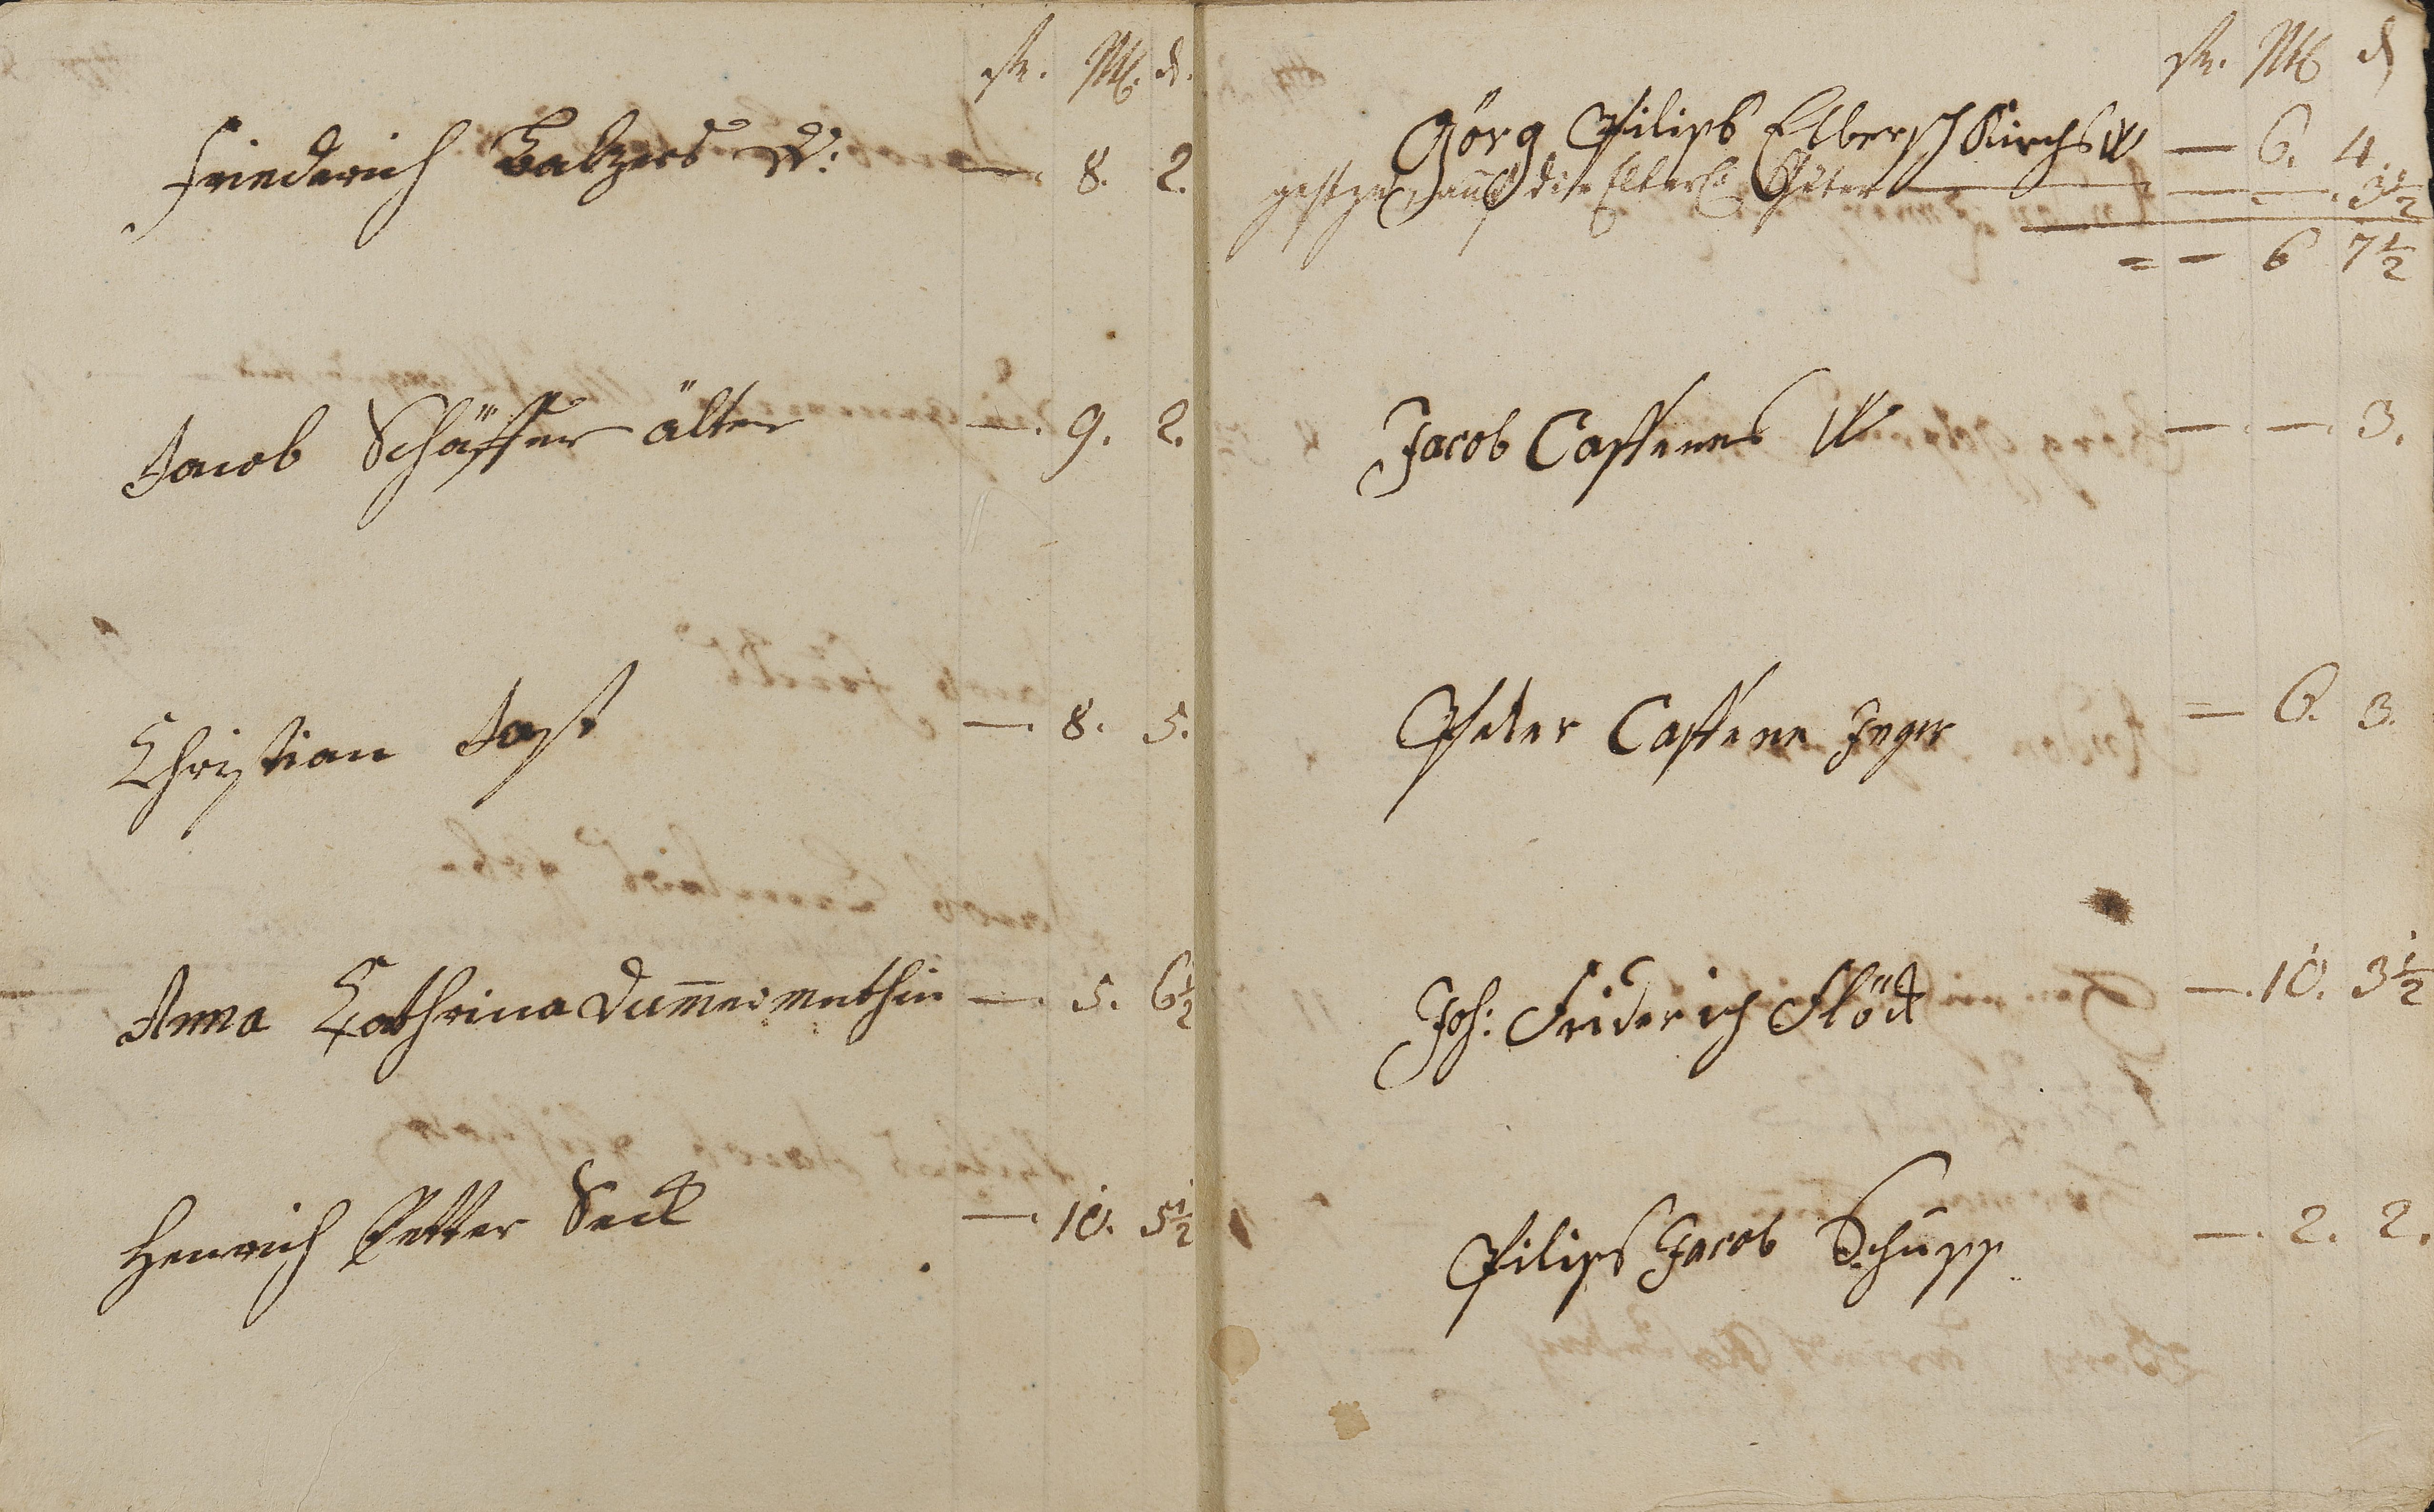 fl. Alb. d.
Friederich Balzers W: — 8. 2.
Jacob Schäffer älter —. 9. 2.
Christian Jost —. 8. 5.
Anna Cathrina Dum̄ermuthin —. 5. 6½
Henrich Petter Seck —. 10. 5½
fl. Alb d
Görg Philips Elbersch Kirchs W — 6. 4.
auf die Güter — — 3½
= — 6 7½
Jacob Castenes W —. —. 3.
Peter Castene Jeger — 6. 3.
Joh: Friderich Flöck —. 10. 3½
Philips Jacob Schupp —. 2. 2.